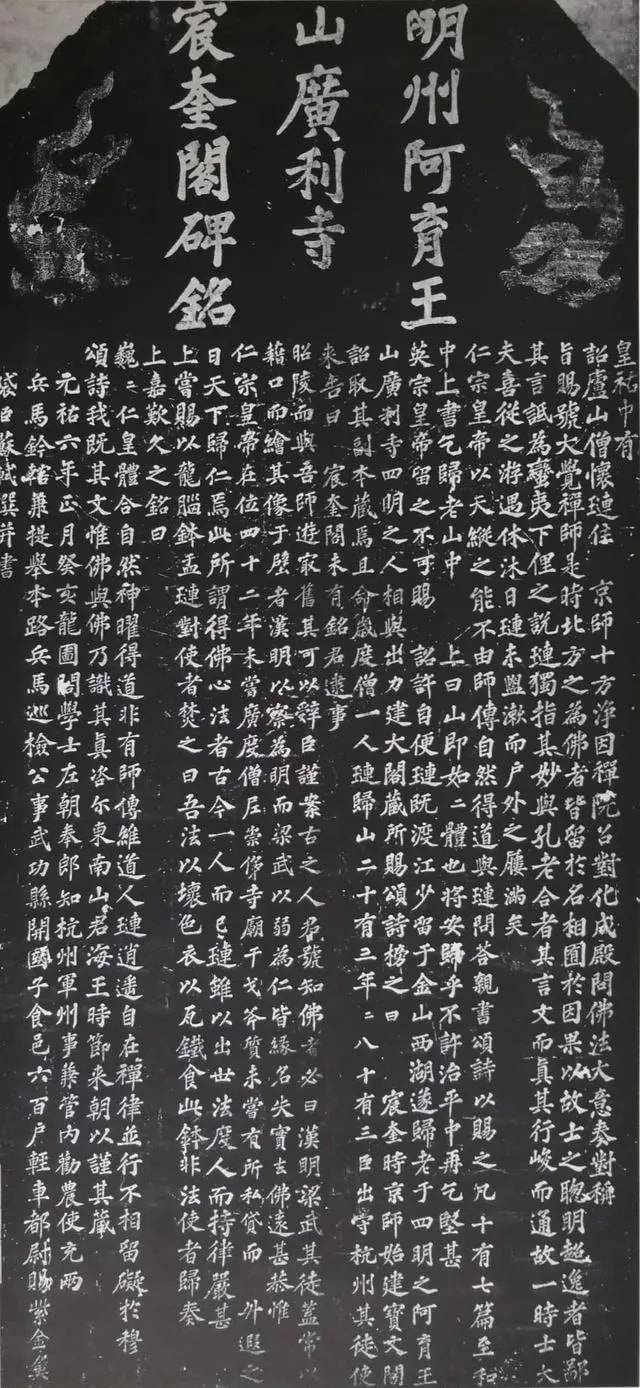 明州阿育王
山廣利寺
宸奎閣碑銘
皇祐中有
詔廬山僧懷璉住　京師十方淨因禪院召對化成殿問佛法大意奏對稱
旨賜號大覺禪師是時北方之為佛者皆留於名相囿於因果以故士之聰明超逸者皆鄙
其言詆為蠻夷下俚之説璉獨指其妙與孔老合者其言文而真其行峻而通故一時士大
夫喜從之游遇休沐日璉未盥漱而户外之屨滿矣
仁宗皇帝以天縱之能不由師傳自然得道與璉問答親書頌詩以賜之凡十有七篇至和
中上書乞歸老山中　上曰山即如〻體也將安歸乎不許治平中再乞堅甚
英宗皇帝留之不可賜　詔許自便璉既渡江少留于金山西湖遂歸老于四明之阿育王
山廣利寺四明之人相與出力建大閣藏所賜頌詩榜之曰　宸奎時京師始建寶文閣
詔取其副本藏焉且命歲度僧一人璉歸山二十有三年〻八十有三臣出守杭州其徒使
來告曰　宸奎閣未有銘君逮事
昭陵而與吾師遊最舊其可以辭臣謹案古之人君號知佛者必曰漢明梁武其徒蓋常以
藉口而繪其像于壁者漢明以察為明而梁武以弱為仁皆緣名失實去佛遠甚恭惟
仁宗皇帝在位四十二年未嘗廣度僧尼崇侈寺廟干戈斧質未嘗有所私貸而　升遐之
日天下歸仁焉此所謂得佛心法者古今一人而已璉雖以出世法度人而持律嚴甚
上嘗賜以龍腦鉢盂璉對使者焚之曰吾法以壞色衣以瓦鐵食此鉢非法使者歸奏
上嘉歎久之銘曰
巍〻仁皇體合自然神曜得道非有師傳維道人璉逍遙自在禪律並行不相留礙於穆
頌詩我既其文惟佛與佛乃識其真咨尔東南山君海王時節來朝以謹其藏
元祐六年正月癸亥龍圖閣學士左朝奉郎知杭州軍州事兼管內勸農使充兩
兵馬鈐轄兼提舉本路兵馬巡檢公事武功縣開國子食邑六百户輕車都尉賜紫金魚
袋臣蘇軾撰并書